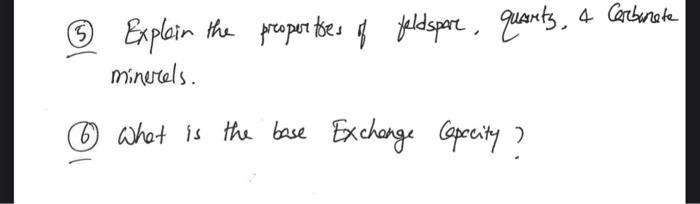 ⑤ Explain the properties of feldspar, quartz, & Carbonate
minerals.
⑥ What is the base Exchange Capacity?